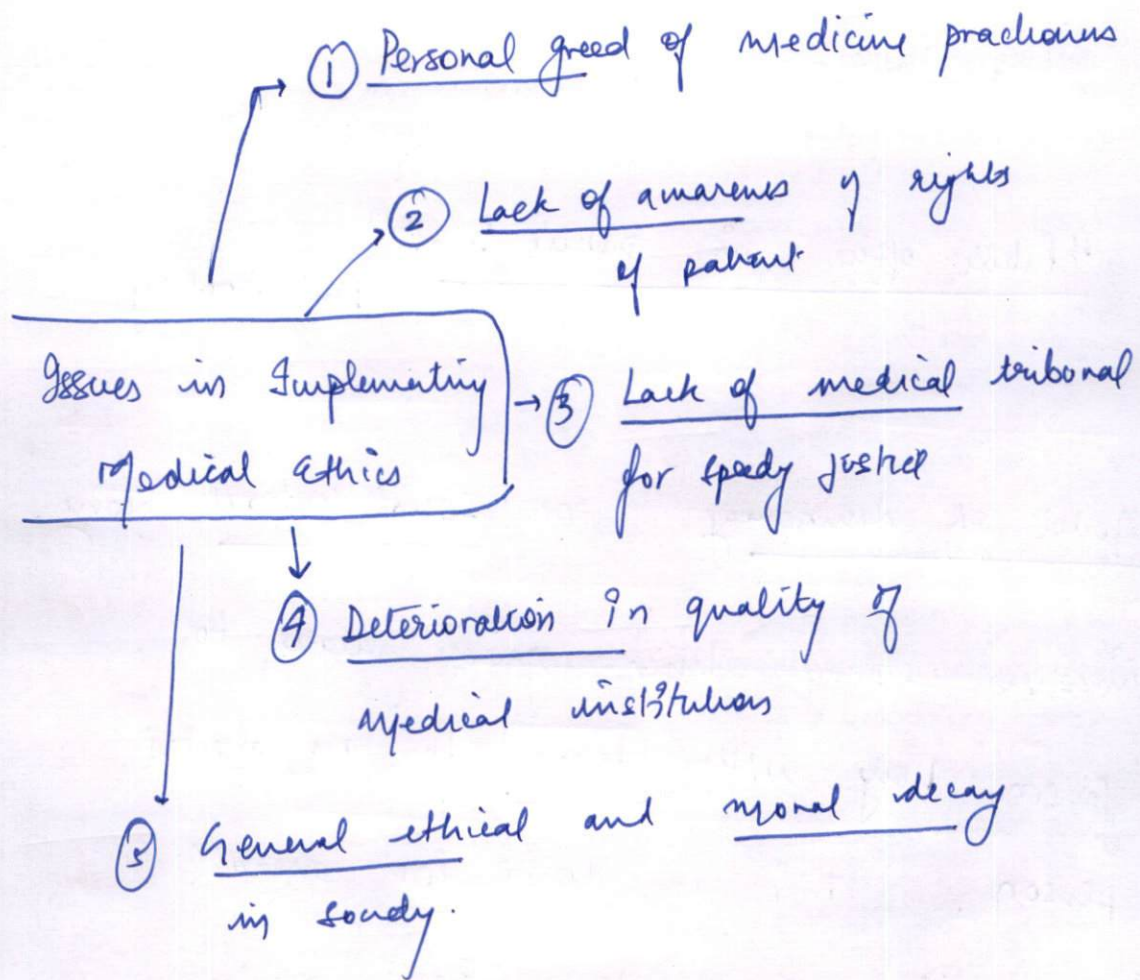 ① Personal greed of medicine prachoners
② Lack of awarenes of rights
of patient
Issues in Implementing
Medical Ethics
→ ③ Lack of medical tribonal
for speedy justice
④ Deterioration in quality of
Medical institutions
⑤ General ethical and moral decay
in society.